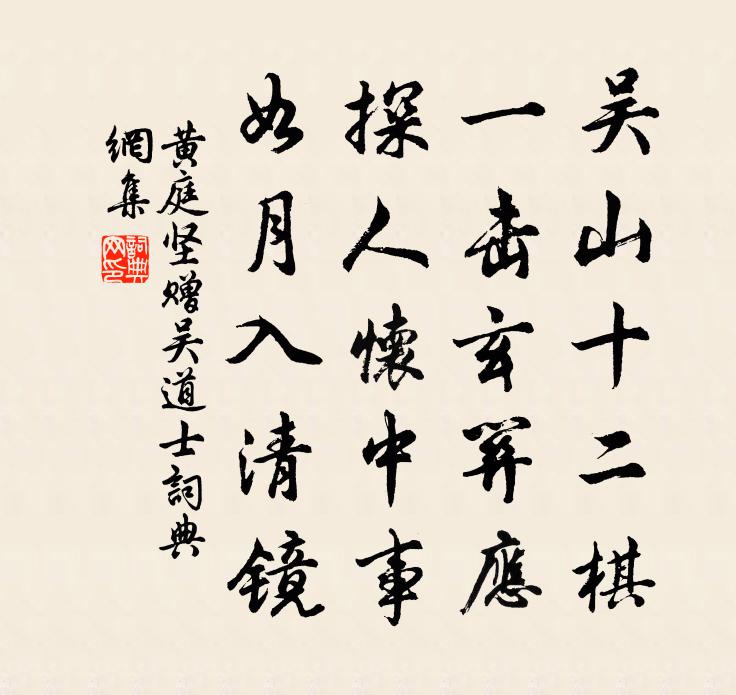 吴山十二棋
一击玄筭應
探人懷中事
如月入清镜
黄庭坚赠吴道士詞典
網集
詞典
网印